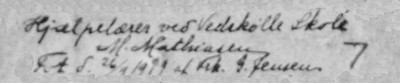 Hjælpelærer ved Vedskølle Skole
M. Mathiasen
F.t. S. 26/1 1999 af Frk. G. Jensen